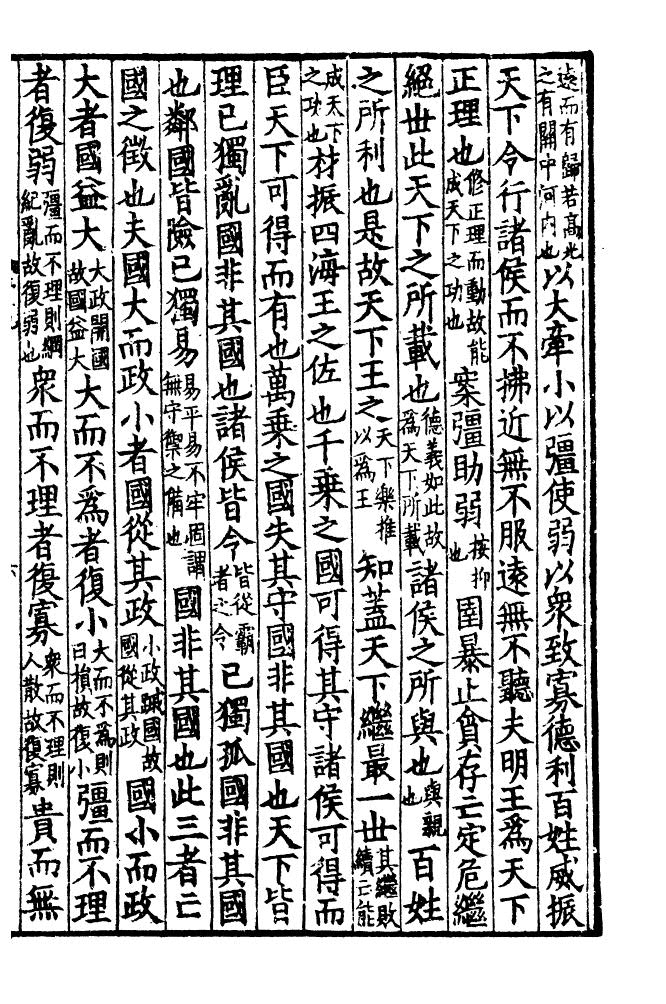 遠而有歸若高光之有關中河内也以大牽小以彊使弱以衆致寡德利百姓威振
天下令行諸侯而不拂近無不服遠無不聽夫明王爲天下
正理也修正理而動故能成天下之功也案彊助弱按抑也圉暴止貪存亡定危繼
絕世此天下之所載也德義如此故爲天下所載諸侯之所與也與親也百姓
之所利也是故天下王之天下樂推以爲王知蓋天下繼最一世其繼敗續亡能
成天下之功也材振四海王之佐也千乘之國可得其守諸侯可得而
臣天下可得而有也萬乘之國失其守國非其國也天下皆
理已獨亂國非其國也諸侯皆令皆從霸者之令已獨孤國非其國
也鄰國皆險已獨易易平易不牢固謂無守禦之備也國非其國也此三者亡
國之徵也夫國大而政小者國從其政小政蹙國故國從其政國小而政
大者國益大大政開國故國益大大而不爲者復小大而不爲則日損故復小彊而不理
者復弱彊而不理則綱紀亂故復弱也衆而不理者復寡衆而不理則人散故復寡貴而無